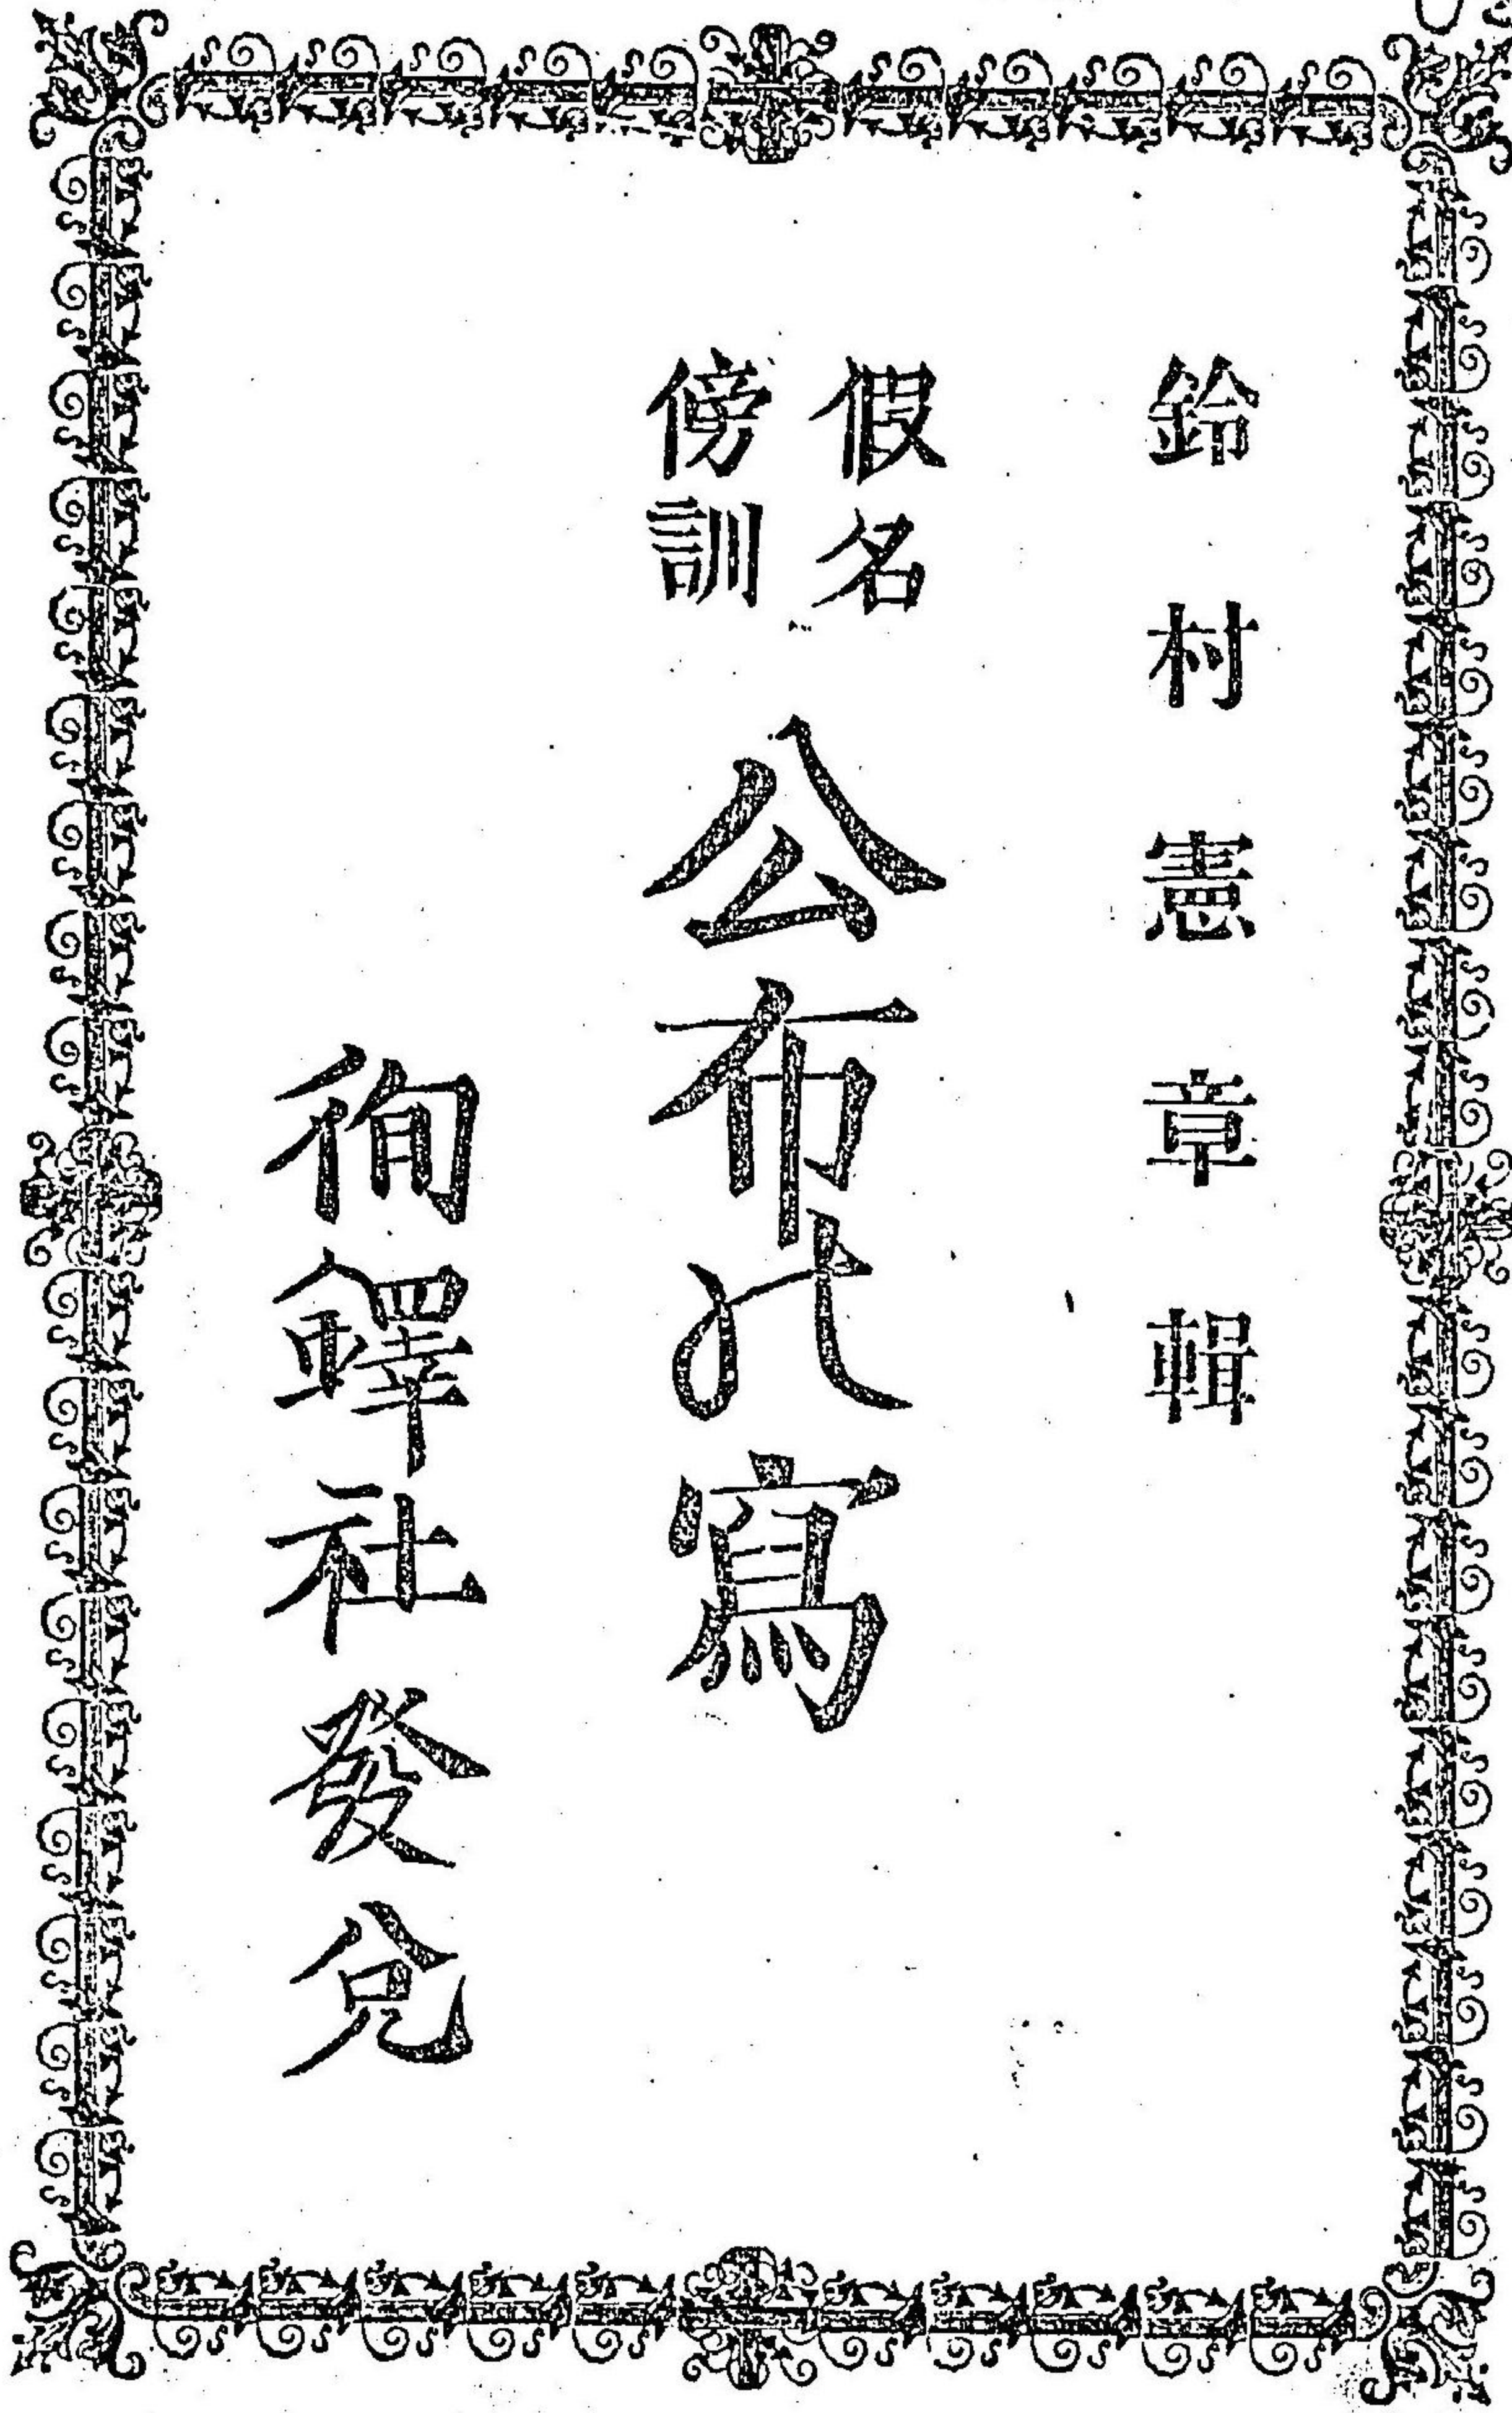 鈴村憲章輯
假名
傍訓
公布の寫
徇鐸社發兌